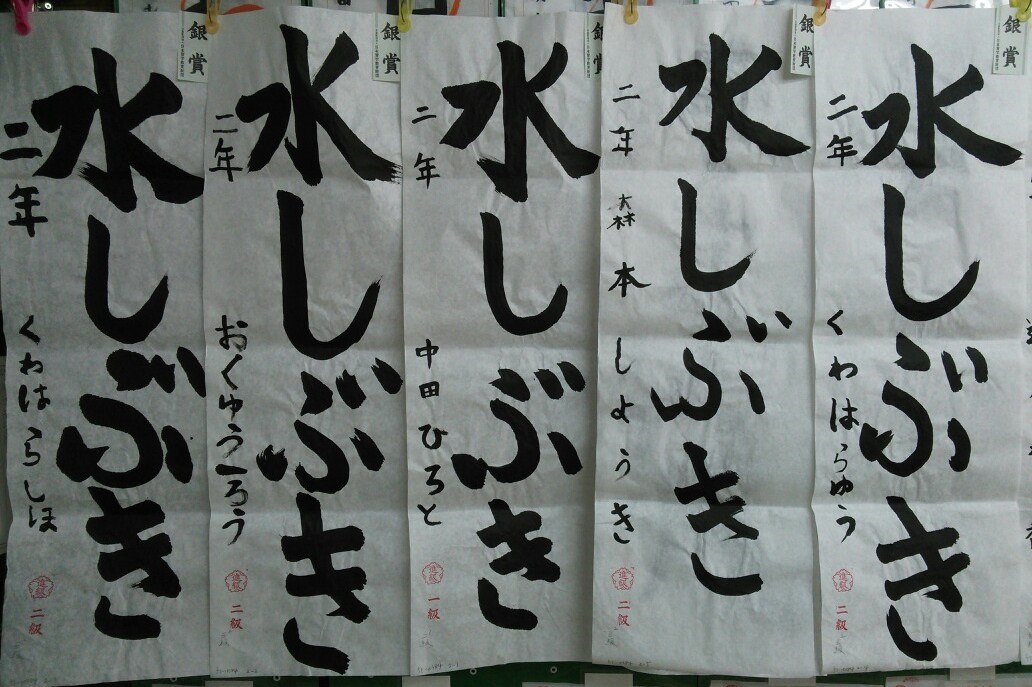 銀賞
水しぶき
二年
くわはらしほ
進級
二級
銀賞
水しぶき
二年
おくゆうころう
進級
二級
銀賞
水しぶき
二年
中田ひろと
進級
一級
銀賞
水しぶき
二年
森本しようき
進級
二級
銀賞
水しぶき
二年
くわはらゆう
進級
二級